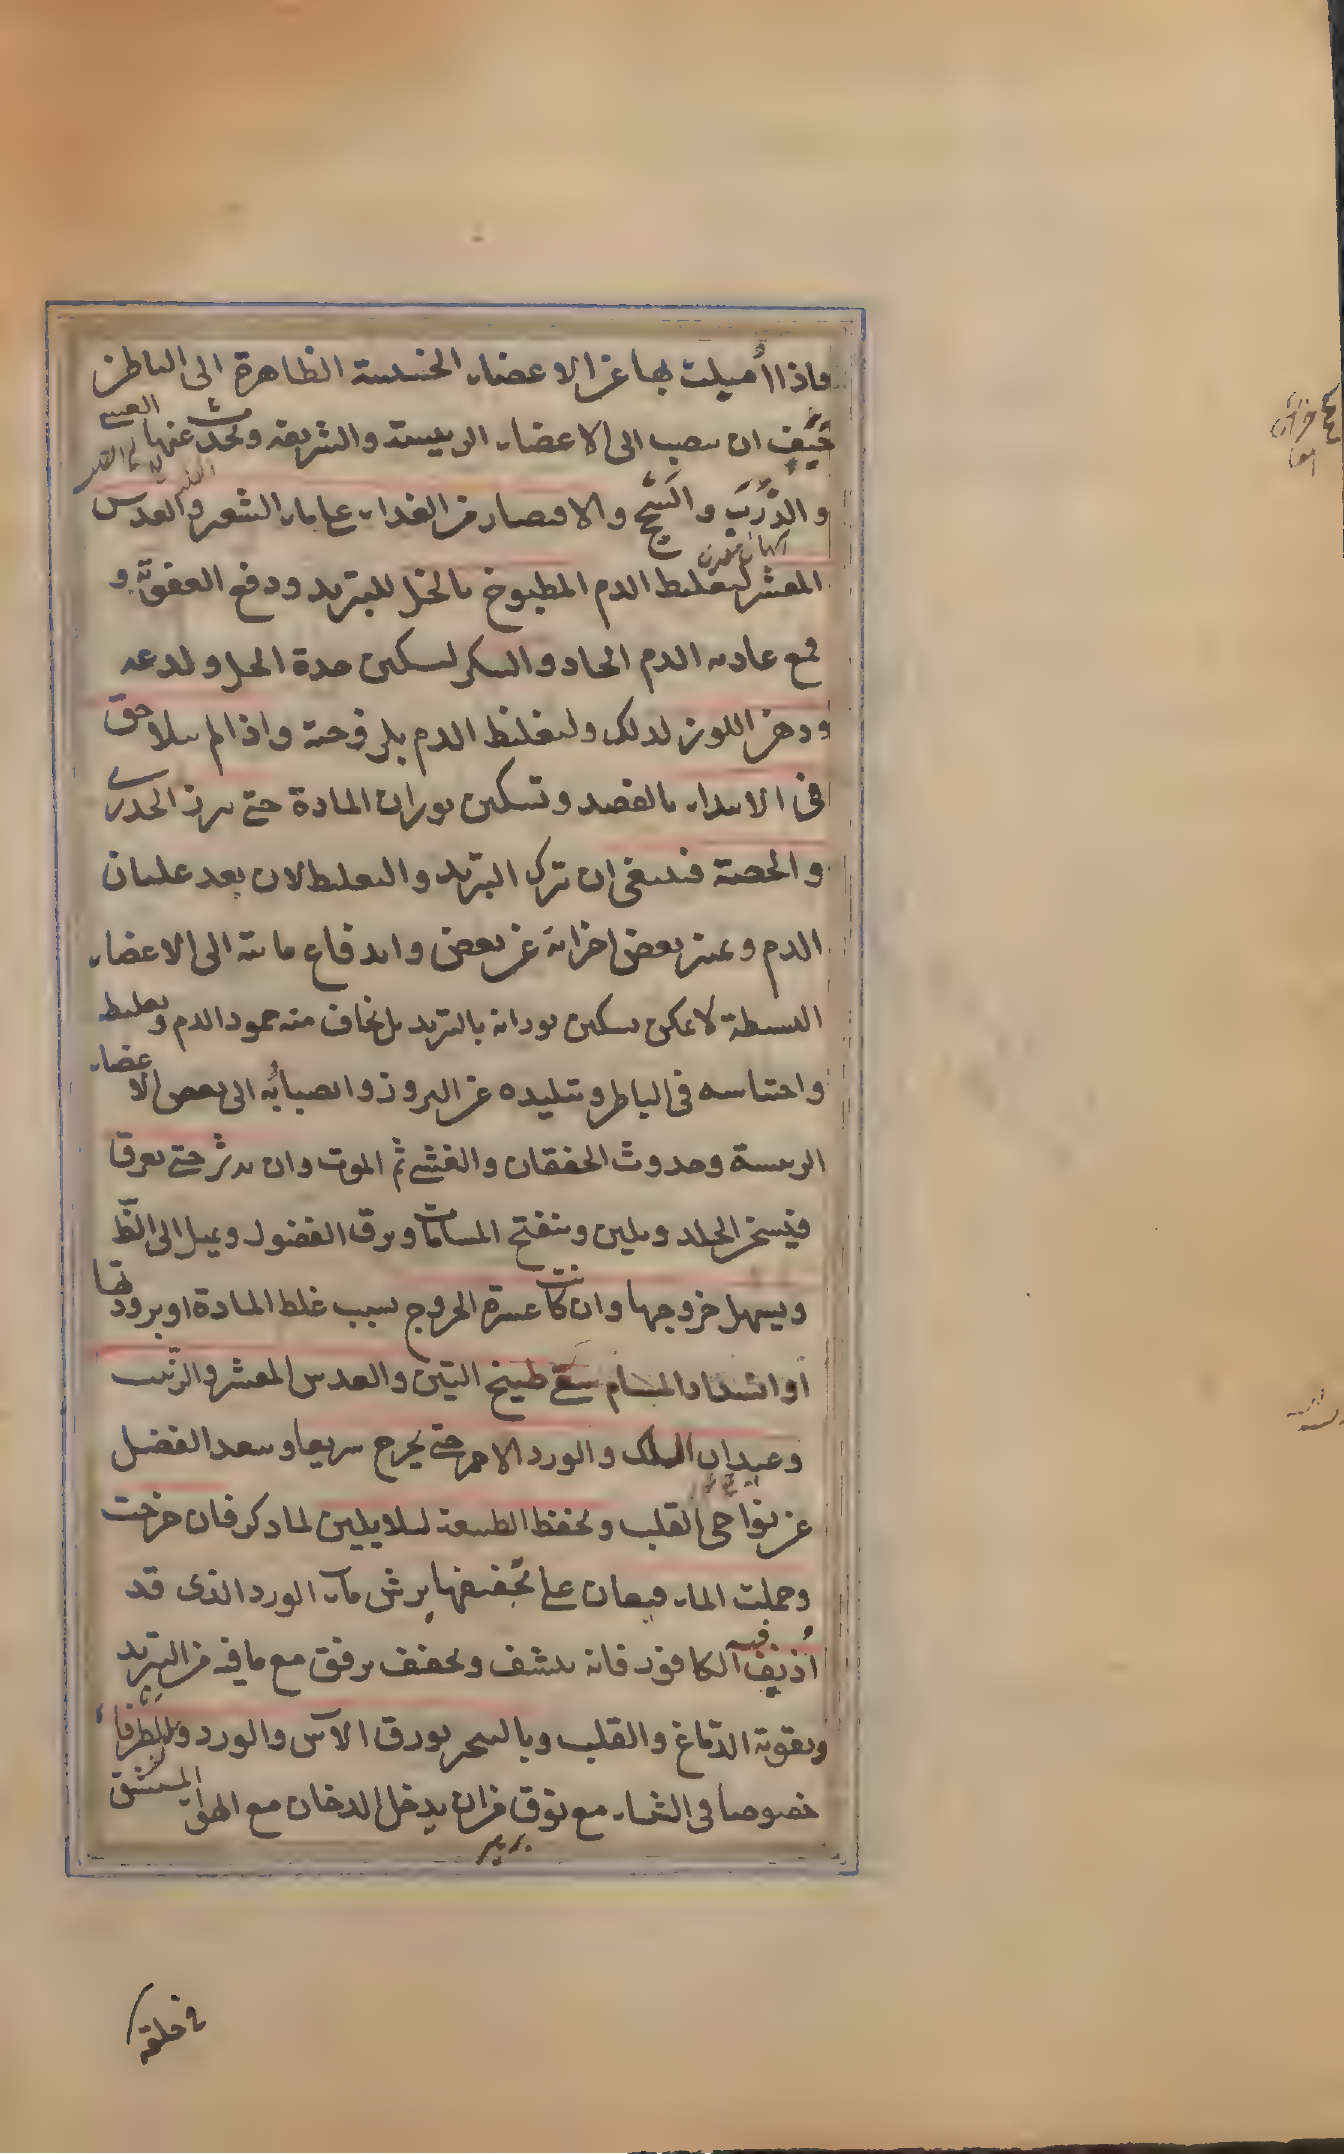 واذا اميلت بها عن الاعضاء الخسيسة الظاهرة الى الباطن
خيف ان تنصب الى الاعضاء الرئيسة والشريفة وتحدث عنها الغشي
والذرب والسحج والاقتصار من الغذاء على ماء الشعير والعدس
المقشر لتغليظ الدم المطبوخ بالخل للتبريد ودفع العفونة و
قمع عادية الدم الحاد والسكر لتسكين حدة الخل ولذعه
ودهن اللوز لذلك ولتغليظ الدم بلزوجته واذا لم يتلاحق
في الابتداء بالفصد وتسكين ثوران المادة حتى برز الجدري
والحصبة فينبغي ان يترك التبريد والتغليظ لان بعد غليان
الدم وتميز بعض اجزائه عن بعض واندفاع مائيته الى الاعضاء
البسيطة لا يمكن تسكين ثورانه بالتبريد بل يخاف منه جمود الدم وتغليظه
واحتباسه في الباطن وتبليده عن البروز وانصبابه الى بعض الاعضاء
الرئيسة وحدوث الخفقان والغشي ثم الموت وان يدثر حتى يعرقا
فيسخن الجلد ويلين وينفتح المسامات ويرق الفضول ويميل الى الظا
ويسهل خروجها وان كانت عسرة الخروج بسبب غلظ المادة او برودتها
او انسداد المسام سقي طبيخ التين والعدس المقشر والزبيب
وعيدان اللك والورد الاحمر حتى يخرج سريعا ويبعد الفضل
عن نواحي القلب ويحفظ الطبيعة لئلا يلين لما ذكر فان خرجت
وحملت الماء فيعان على تجفيفها برش ماء الورد الذي قد
اذيف فيه الكافور فانه ينشف ويجفف برفق مع ما فيه من التبريد
وتقوية الدماغ والقلب وبالتبخير بورق الآس والورد والطرفاء
خصوصا في الشتاء مع توق من ان يدخل الدخان مع الهواء المستنشق
في حلقه